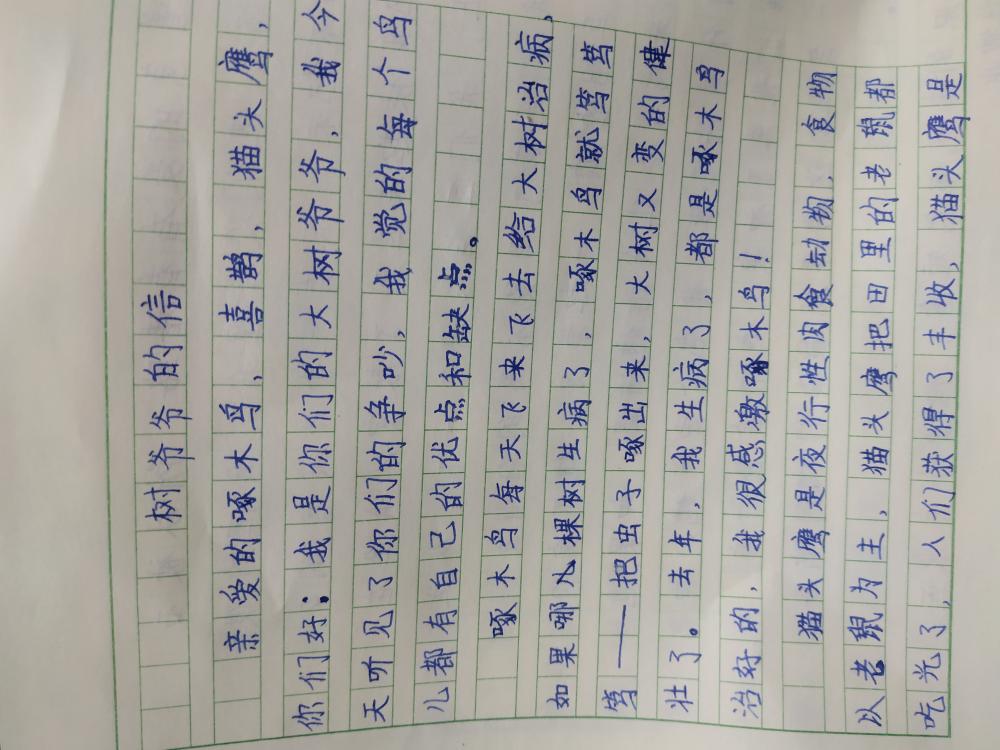 树爷爷的信
亲爱的啄木鸟,喜鹊,猫头鹰,
你们好:我是你们的大树爷爷,我今
天听见了你们的争吵,我觉的每个鸟
儿都有自己的优点和缺点。
啄木鸟每天飞来飞去给大树治病,
如果哪儿棵树生病了,啄木鸟就笃笃
笃——把虫子啄出来,大树又变的健
壮了。去年,我生病了,都是啄木鸟
治好的,我很感激啄木鸟!
猫头鹰是夜行性肉食动物,食物
以老鼠为主,猫头鹰把田里的老鼠都
吃光了,人们获得了丰收,猫头鹰是